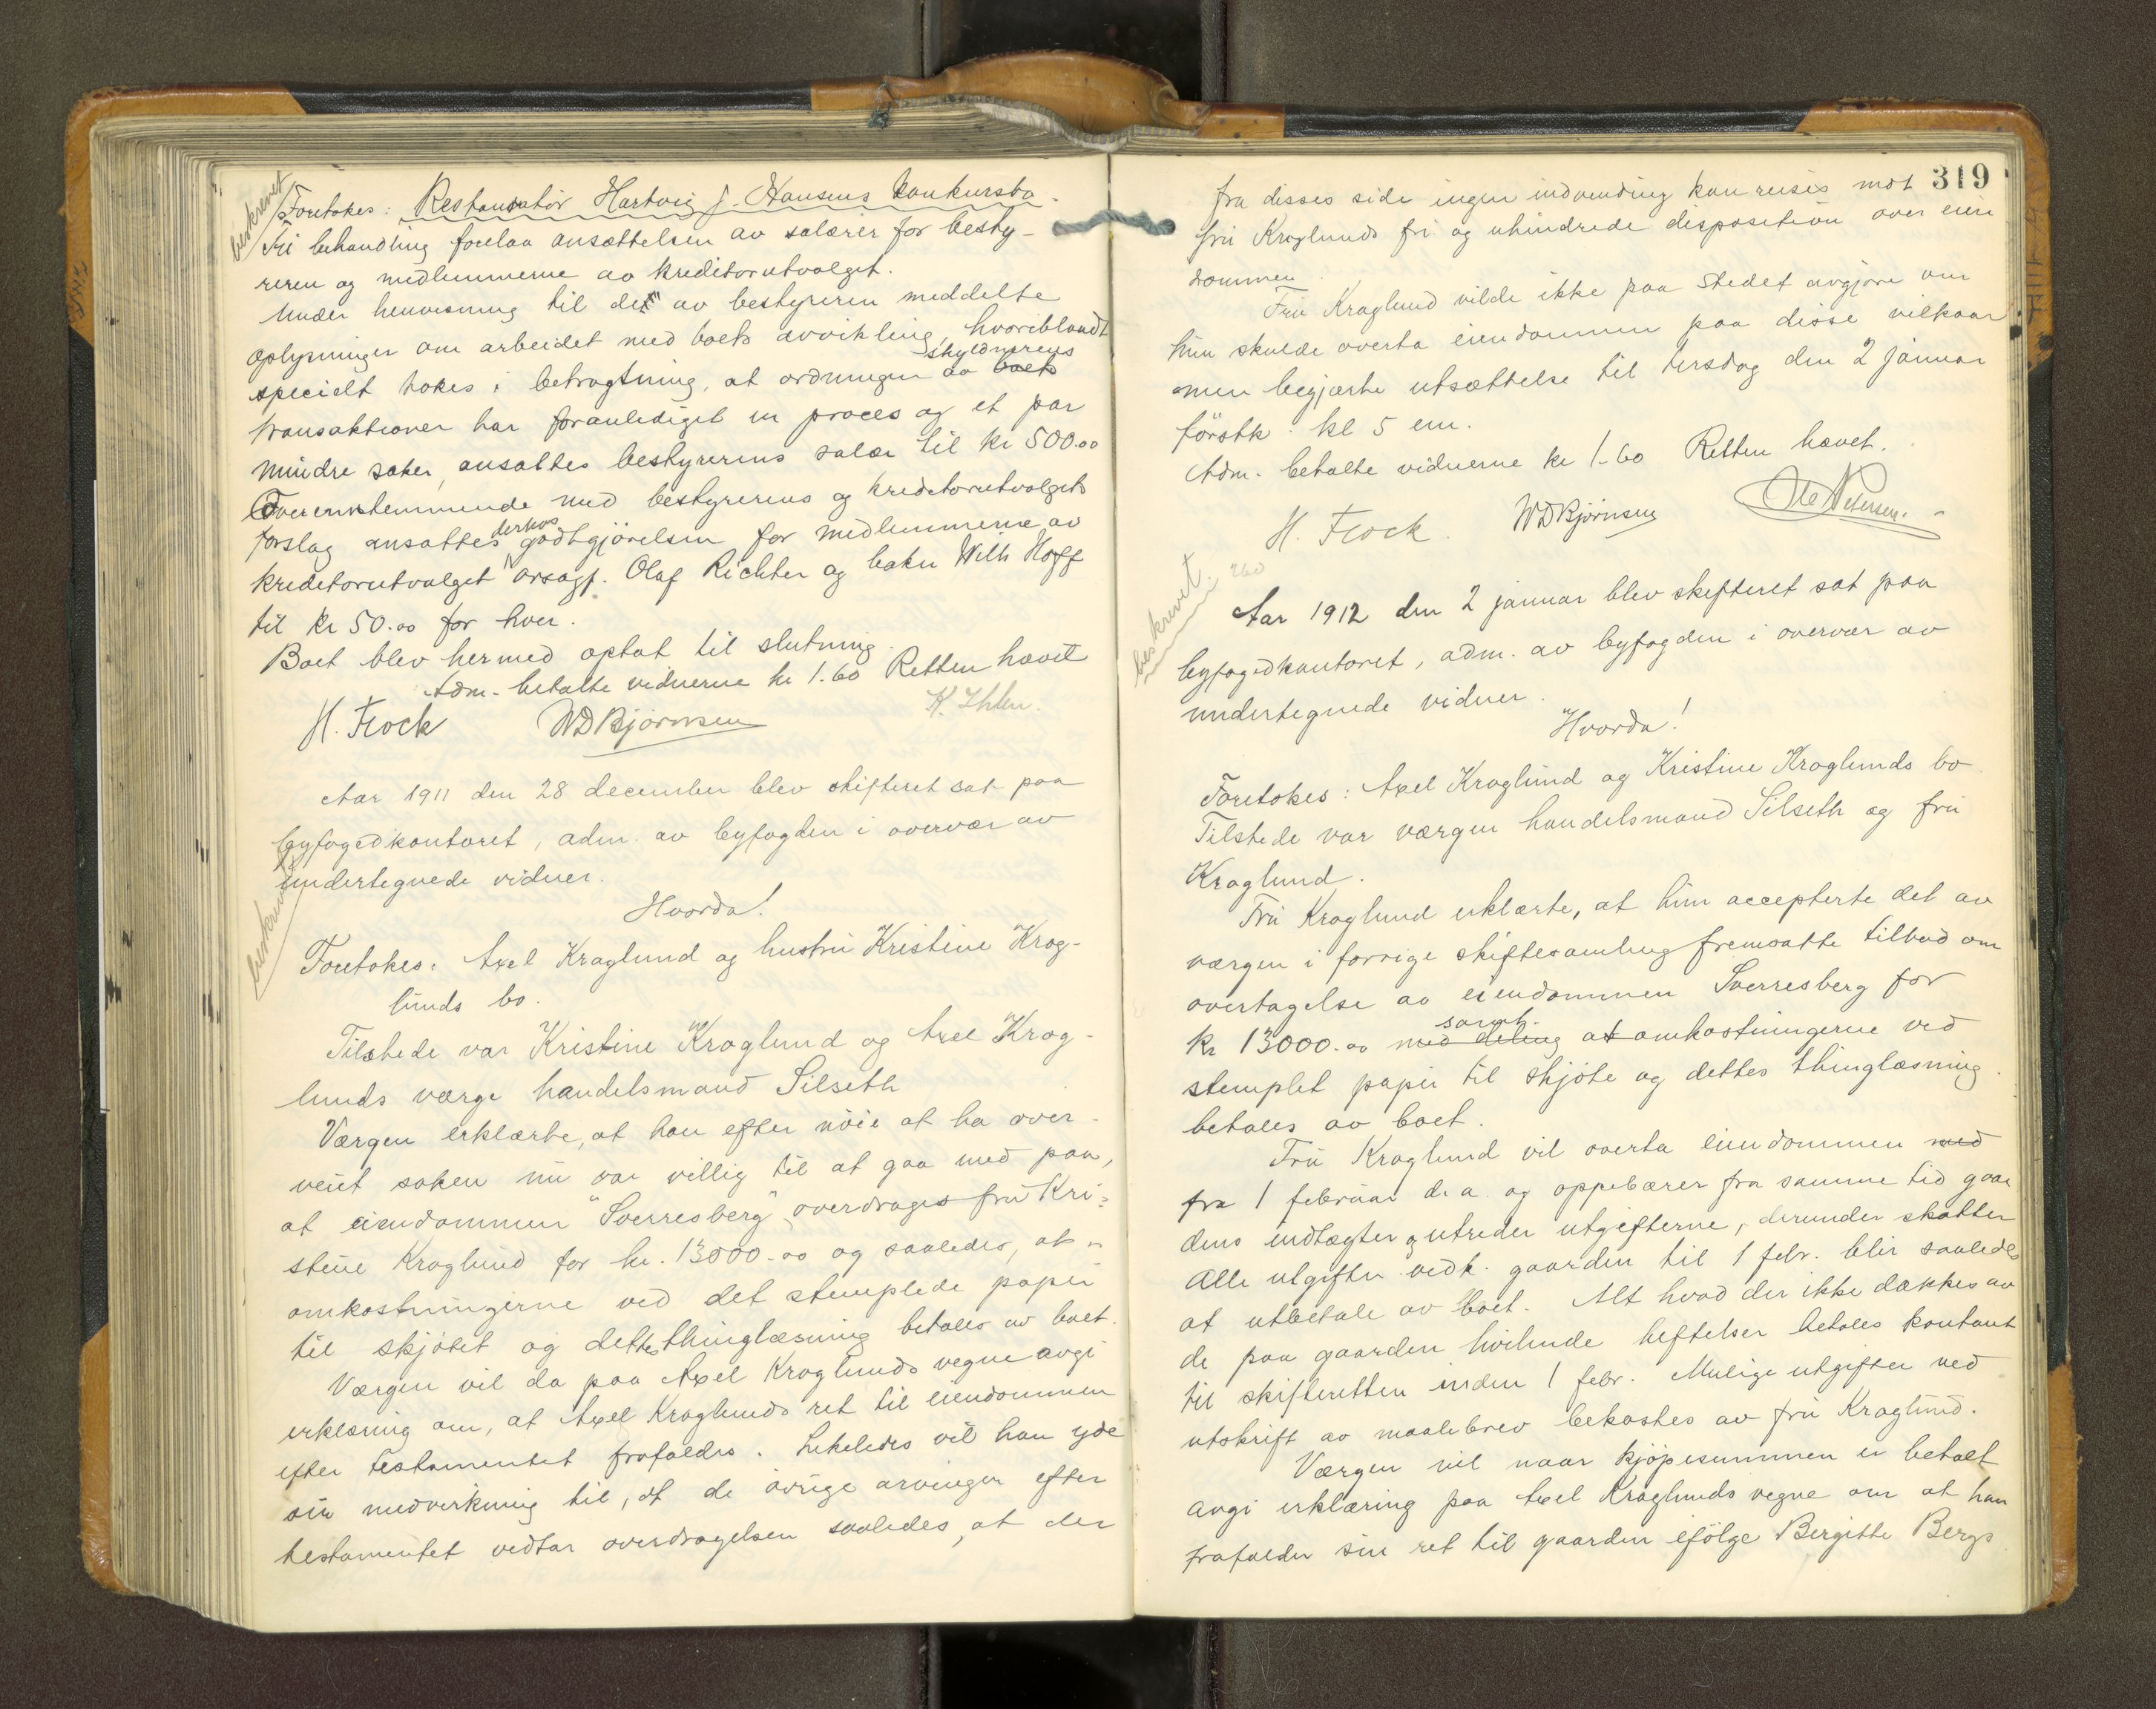 beskrevet
Foretokes: Restauratør Hartvig J. Hansens konkursbo.
Til behandling forelaa ansættelsen av salærer for besty-
reren og medlemmerne av kreditorutvalget.
Under henvisning til de av bestyreren meddelte
oplysninger om arbeidet med boets avvikling, hvoriblandt
specielt tokes i betragtning, at ordningen av boets skyldnerens
transaktioner har foranlediget en proces og et par
mindre saker, ansattes bestyrerens salær til kr 500.00
Overensstemmende med bestyrerens og kreditorutvalgets
forslag ansattes derhos godtgjørelsen for medlemmerne av
kreditorutvalget orsagf. Olaf Richter og baker Wilh Hoff
til kr 50.00 for hver.
Boet blev hermed optat til slutning.
Adm. betalte vidnerne kr 1.60 Retten hævet
K. Ihlen.
H. Frock WDBjørnsen
Aar 1911 den 28 december blev skifteret sat paa
byfogedkontoret, adm. av byfogden i overvær av
undertegnede vidner.
beskrevet
Hvorda!
Foretokes: Axel Kroglund og hustru Kristine Krog-
lunds bo.
Tilstede var Kristine Kroglund og Axel Krog-
lunds værge handelsmand Silseth
Værgen erklærte, at han efter nöie at ha over-
veiet saken nu var villig til at gaa med paa,
at eiendommen "Sverresberg" overdrages fru Kri-
stine Kroglund for kr. 13000.00 og saaledes, at
omkostningerne ved det stemplede papir
til skjötet og dettes thinglæsning betales av boet.
Værgen vil da paa Axel Kroglunds vegne avgi
erklæring om, at Axel Kroglunds ret til eiendommen
efter testamentet frafaldes. Likeledes vil han yde
sin medvirkning til, at de övrige arvinger efter
testamentet vedtar overdragelsen saaledes, at der
319
fra disses side ingen indvending kan reises mot
fru Kroglunds fri og uhindrede disposition over eien
dommen.
Fru Kroglund vilde ikke paa stedet avgjøre om
hun skulde overta eiendommen paa disse vilkaar
men begjærte utsættelse til tirsdag den 2 januar
förstk. kl 5 em.
Adm. betalte vidnerne kr 1-60 Retten hævet.
H. Frock. WDBjørnsen Ole Petersen.
beskrevet.
Aar 1912 den 2 januar blev skifteret sat paa
byfogedkontoret, adm. av byfogden i overvær av
undertegnede vidner.
Hvorda!
Foretokes: Axel Kroglund og Kristine Kroglunds bo
Tilstede var værgen handelsmand Silseth og fru
Kroglund.
Fru Kroglund erklærte, at hun accepterte det av
værgen i forrige skiftesamling fremsatte tilbud om
overtagelse av eiendommen Sverresberg for
kr 13000.00 med deling samt at omkostningerne ved
stemplet papir til skjöte og dettes thinglæsning
betales av boet.
Fru Kroglund vil overta eiendommen med
fra 1 februar d.a. og oppebærer fra samme tid gaar
dens indtægter og utreder utgifterne, derunder skatter
Alle utgifter vedk. gaarden til 1 febr. blir saaledes
at utbetale av boet. Alt hvad der ikke dækkes av
de paa gaarden hvilende heftelser betales kontant
til skifteretten inden 1 febr. Mulige utgifter ved
utskrift av maalebrev bekostes av fru Kroglund.
Værgen vil naar kjöpesummen er betalt
avgi erklæring paa Axel Kroglunds vegne om at han
frafalder sin ret til gaarden ifölge Bergitte Bergs